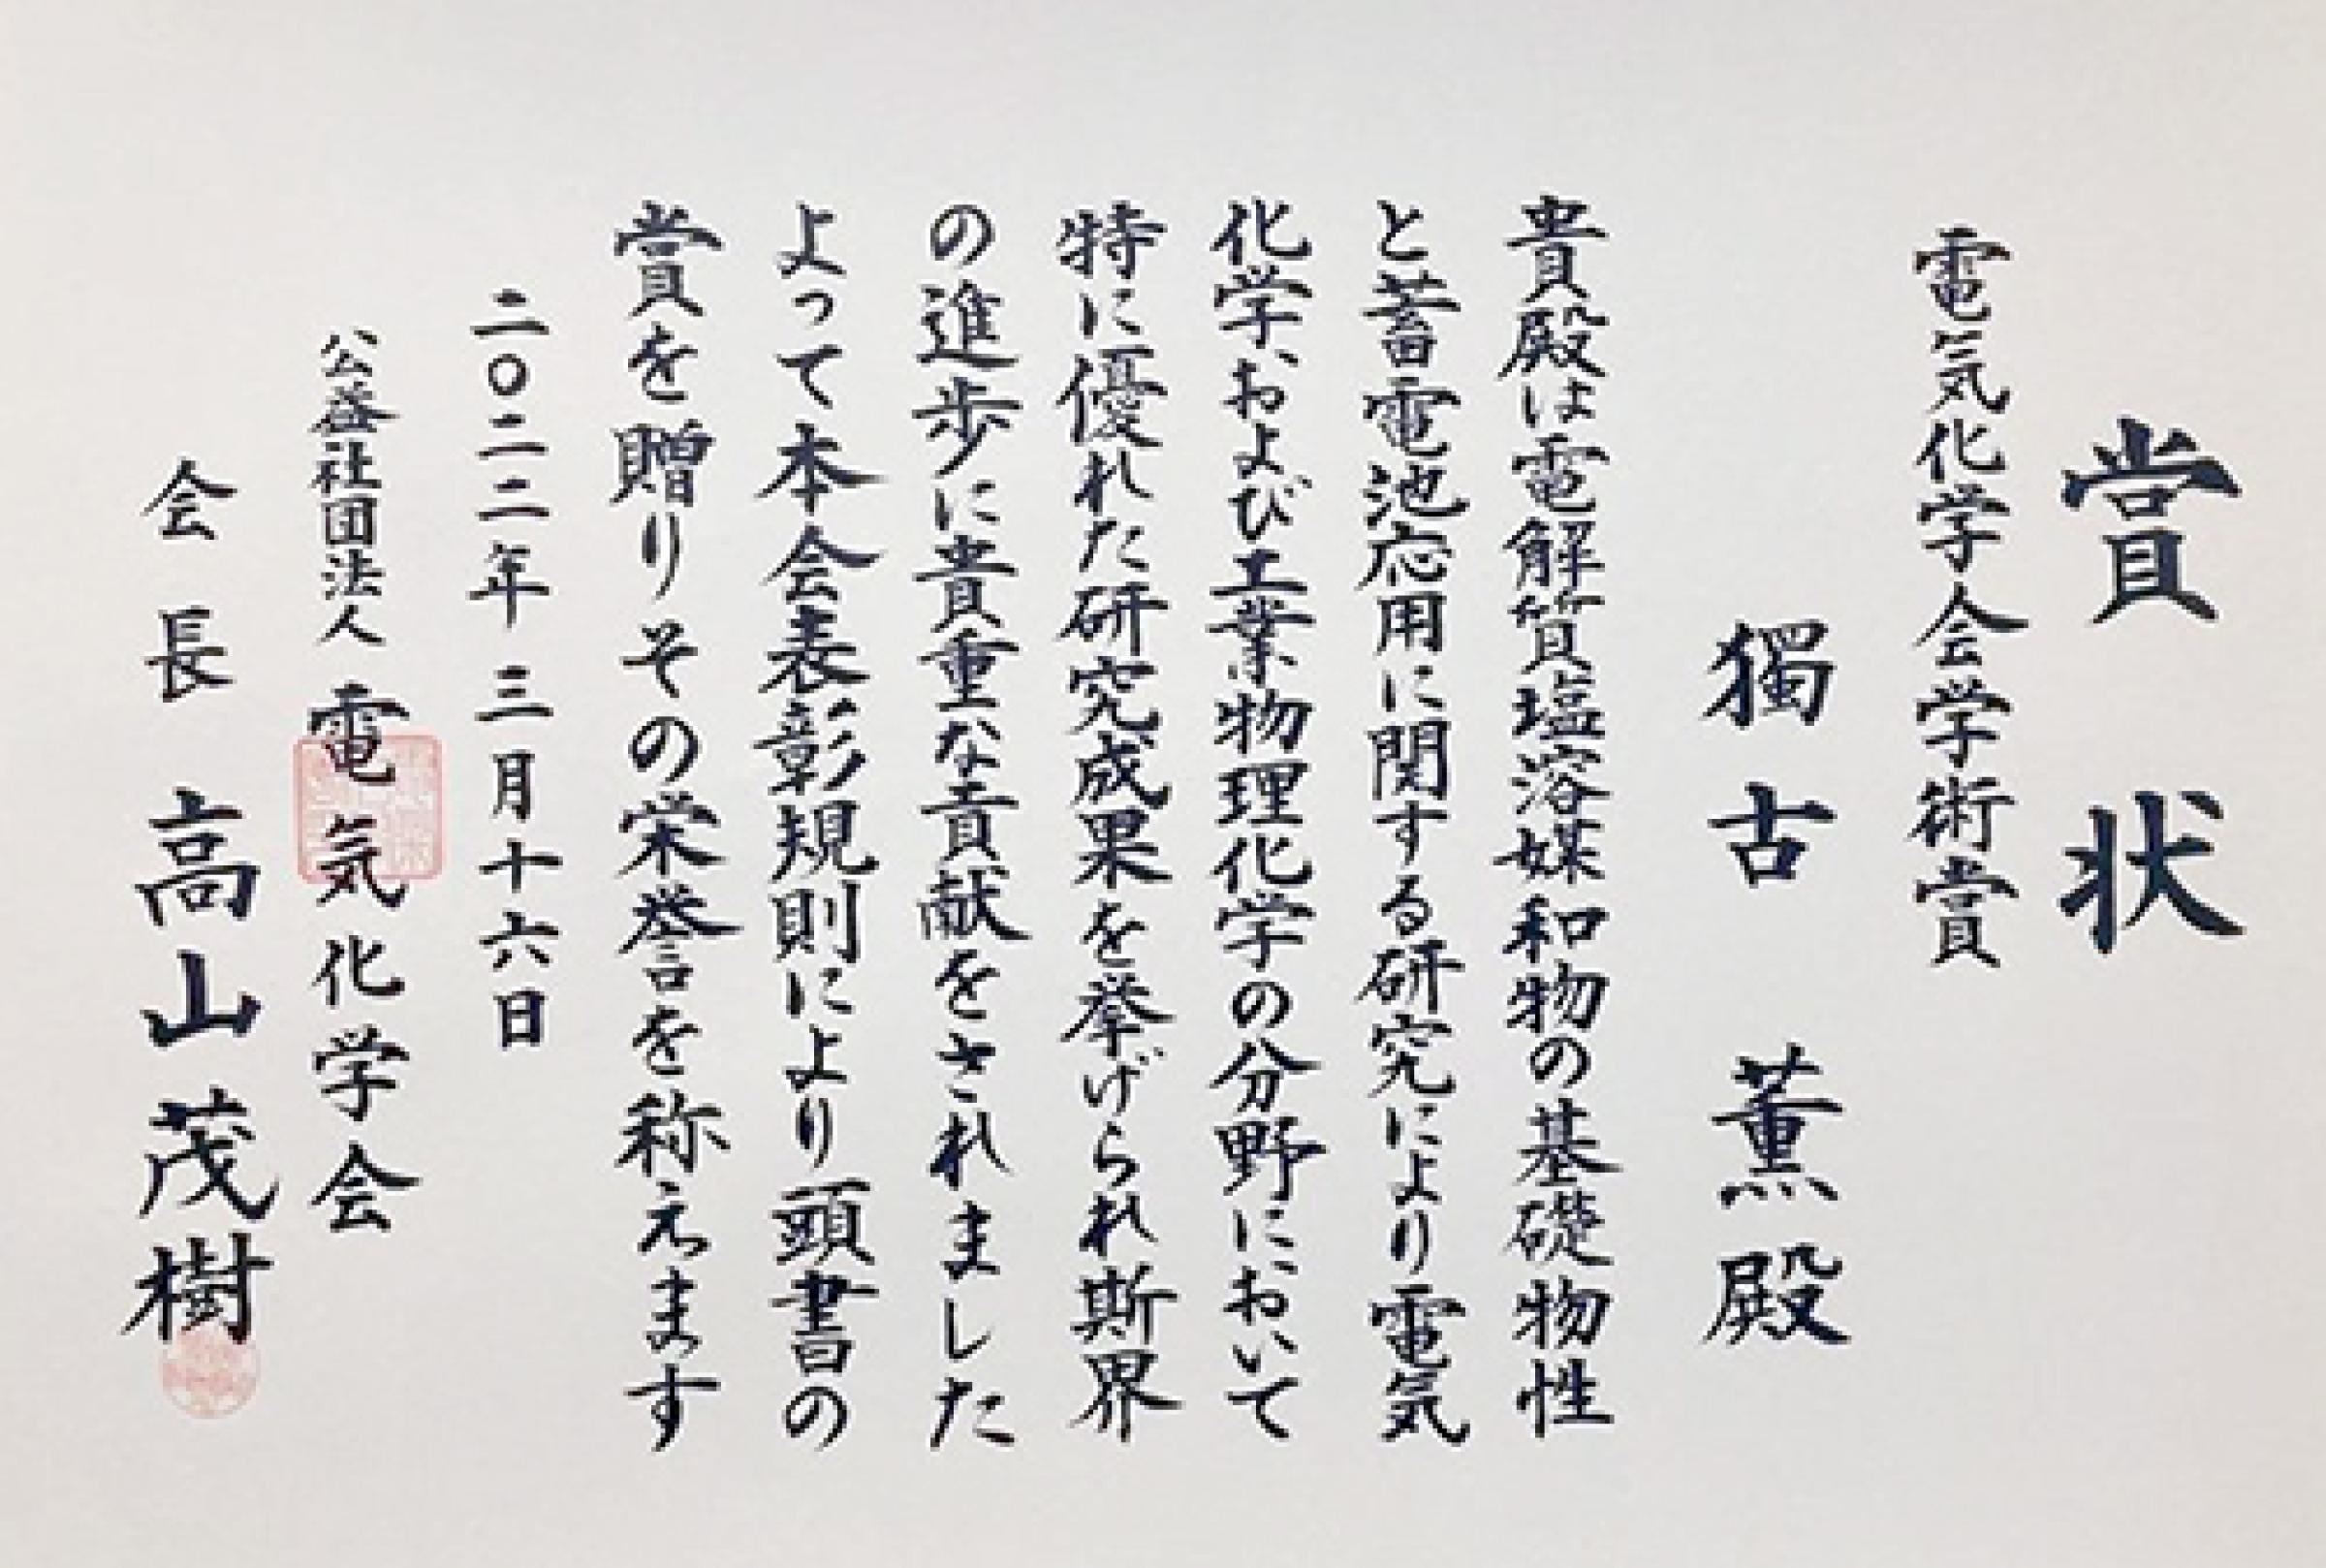 賞状
電気化学会学術賞
獨古 薫殿
貴殿は電解質塩溶媒和物の基礎物性
と蓄電池応用に関する研究により電気
化学および工業物理化学の分野において
特に優れた研究成果を挙げられ斯界
の進歩に貴重な貢献をされました
よって本会表彰規則により頭書の
賞を贈りその栄誉を称えます
二〇二二年三月十六日
公益社団法人 電気化学会
会長 高山茂樹